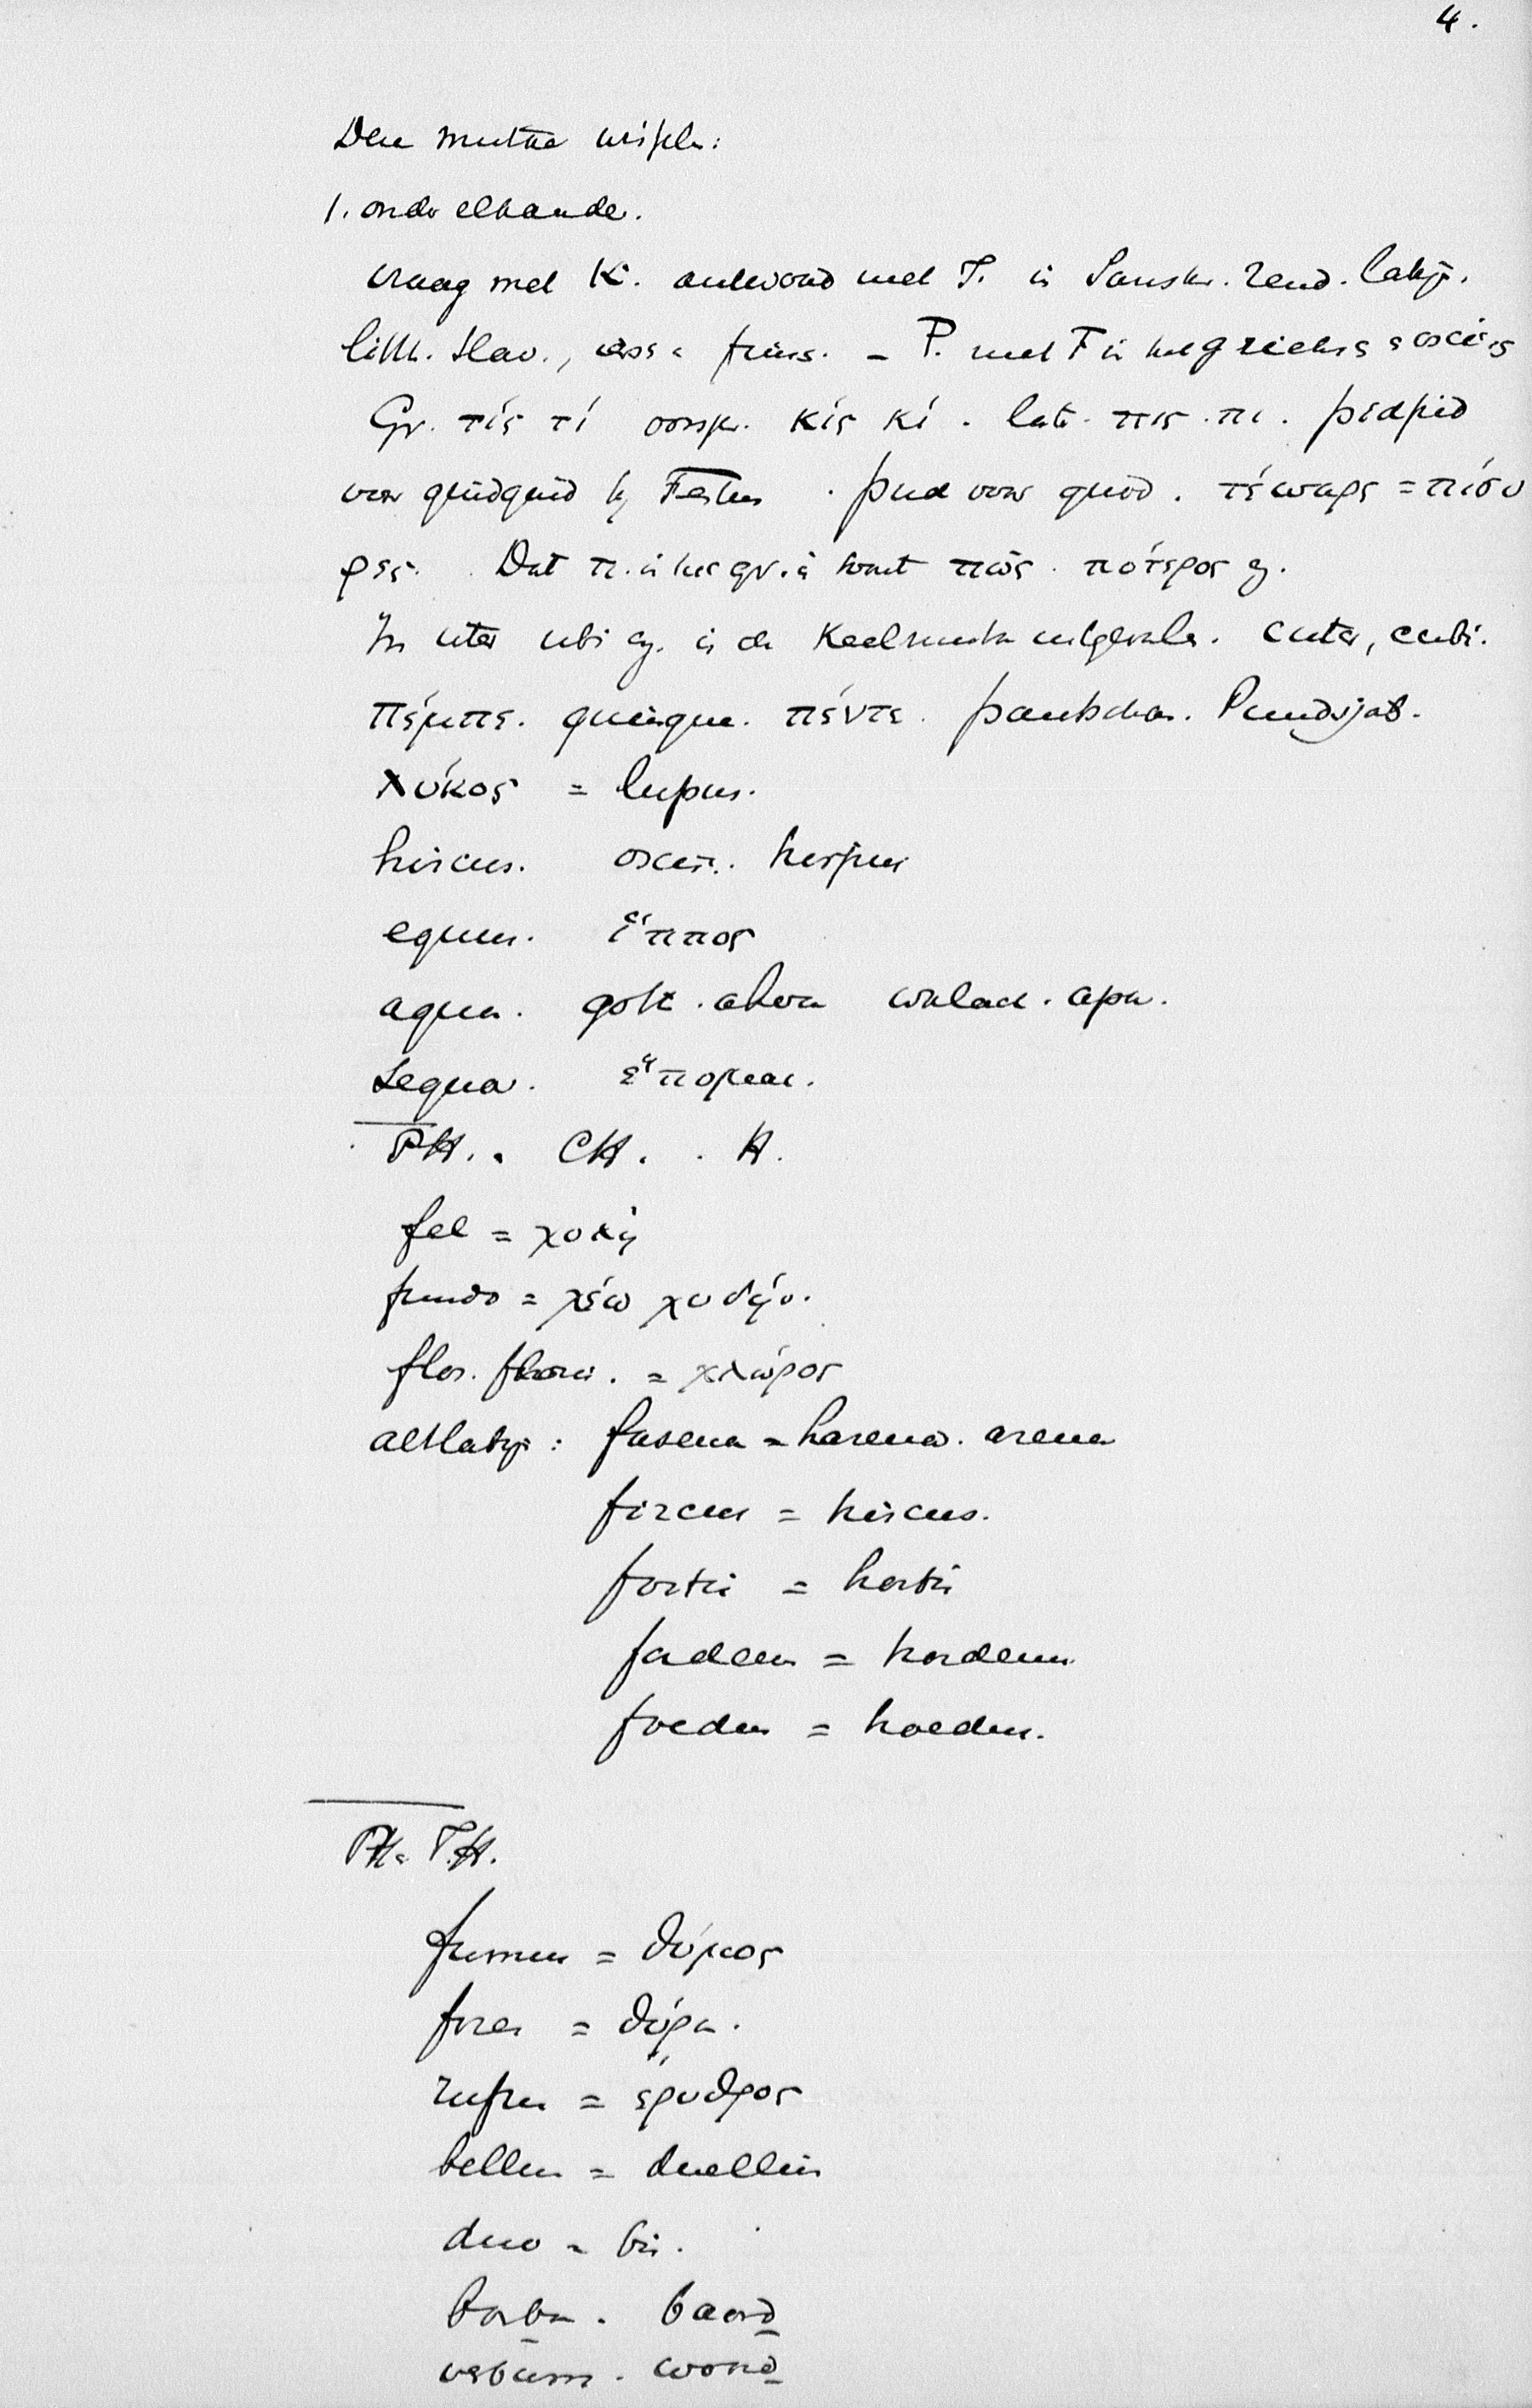 4.
Den mutae wisseln:
1. onder elkander.
vraag met K. antwoord met T. in Sanskr. Zend. Latijn.
litth. Slav., en fins. – P. met T in het grieksch & oscisch
Gr. τίς τί oorspr. κίς κί. lati. πις. πι. pidpid
voor quidquid bij Festus. pud voor quod. τέσσαρες = πίσυ
ρες. Dat π. in het gr. is komt πῶς. πότερος ez.
In uter ubi ez. is de Keelmuta uitgevallen. cuter, cubi.
πέμπε. quinque. πέντε. pantscha. Pundsjab.
λύκος = lupus.
hircus. oscisch. hirpus
equus. ἵππος
aqua. goth. ahva walach. apa.
sequor. ἕπομαι.
PH. . CH. . H.
fel = χολή
fundo = χέω χυδήν.
flos. floris. = χλώρος
altlatijn: fasena = harena. arena
fircus = hircus.
fostis = hostis
fordeum = hordeum.
foedus = hoedus.
PH = T.H.
fumus = θύμος
fores = θύρα.
rufus = ἐρυθρος
bellum = duellum
duo = bis.
barba. baard
verbum. woord